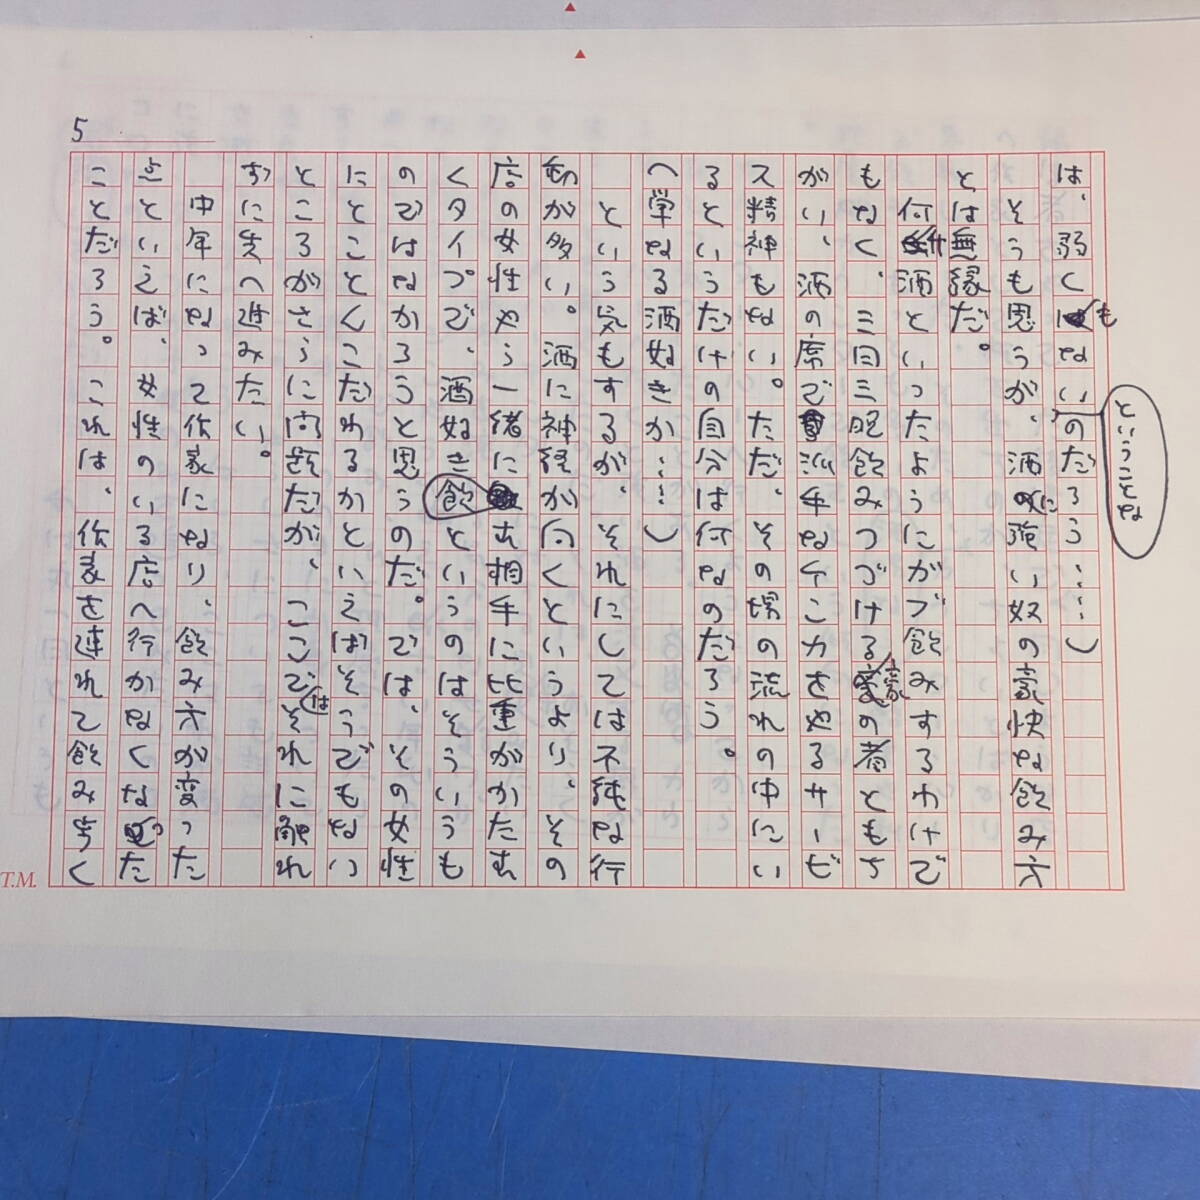 5
は、弱くもない(ということな)のだろう……)
　そうも思うが、酒に強い奴の豪快な飲み方
とは無縁だ。
　何升酒といったようにがブ飲みするわけで
もなく、三日三晩飲みつづける豪の者ともち
がい、酒の席で派手なチこカをやるサービ
ス精神もない。ただ、その場の流れの中にい
るというだけの自分は何なのだろう。
へ学なる酒好きか……)
　という気もするが、それにしては不純な行
動が多い。酒に神経が向くというより、その
店の女性やら一緒に飲む相手に比重がかたむ
くタイプで、酒好きというのはそういうも
のではなかろうと思うのだ。では、その女性
にとことんこだわるかといえばそうでもない
ところがさらに問題だが、ここではそれに触れ
ずに先へ進みたい。
　中年になって作家になり、飲み方が変った
点といえば、女性のいる店へ行かなくなった
ことだろう。これは、作家を連れて飲み歩く
T.M.